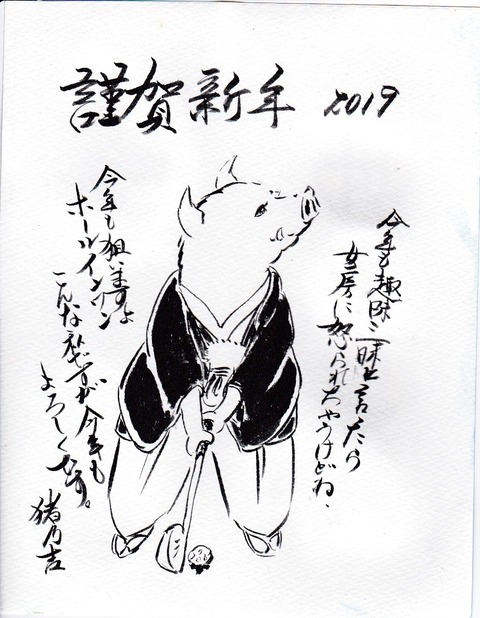 謹賀新年 2019
今年も趣味三昧と言たら
女房に怒られちゃうけどね、
今年も狙いますよ
ホールインワン
こんな私ですが今年も
よろしくです。
猪乃吉